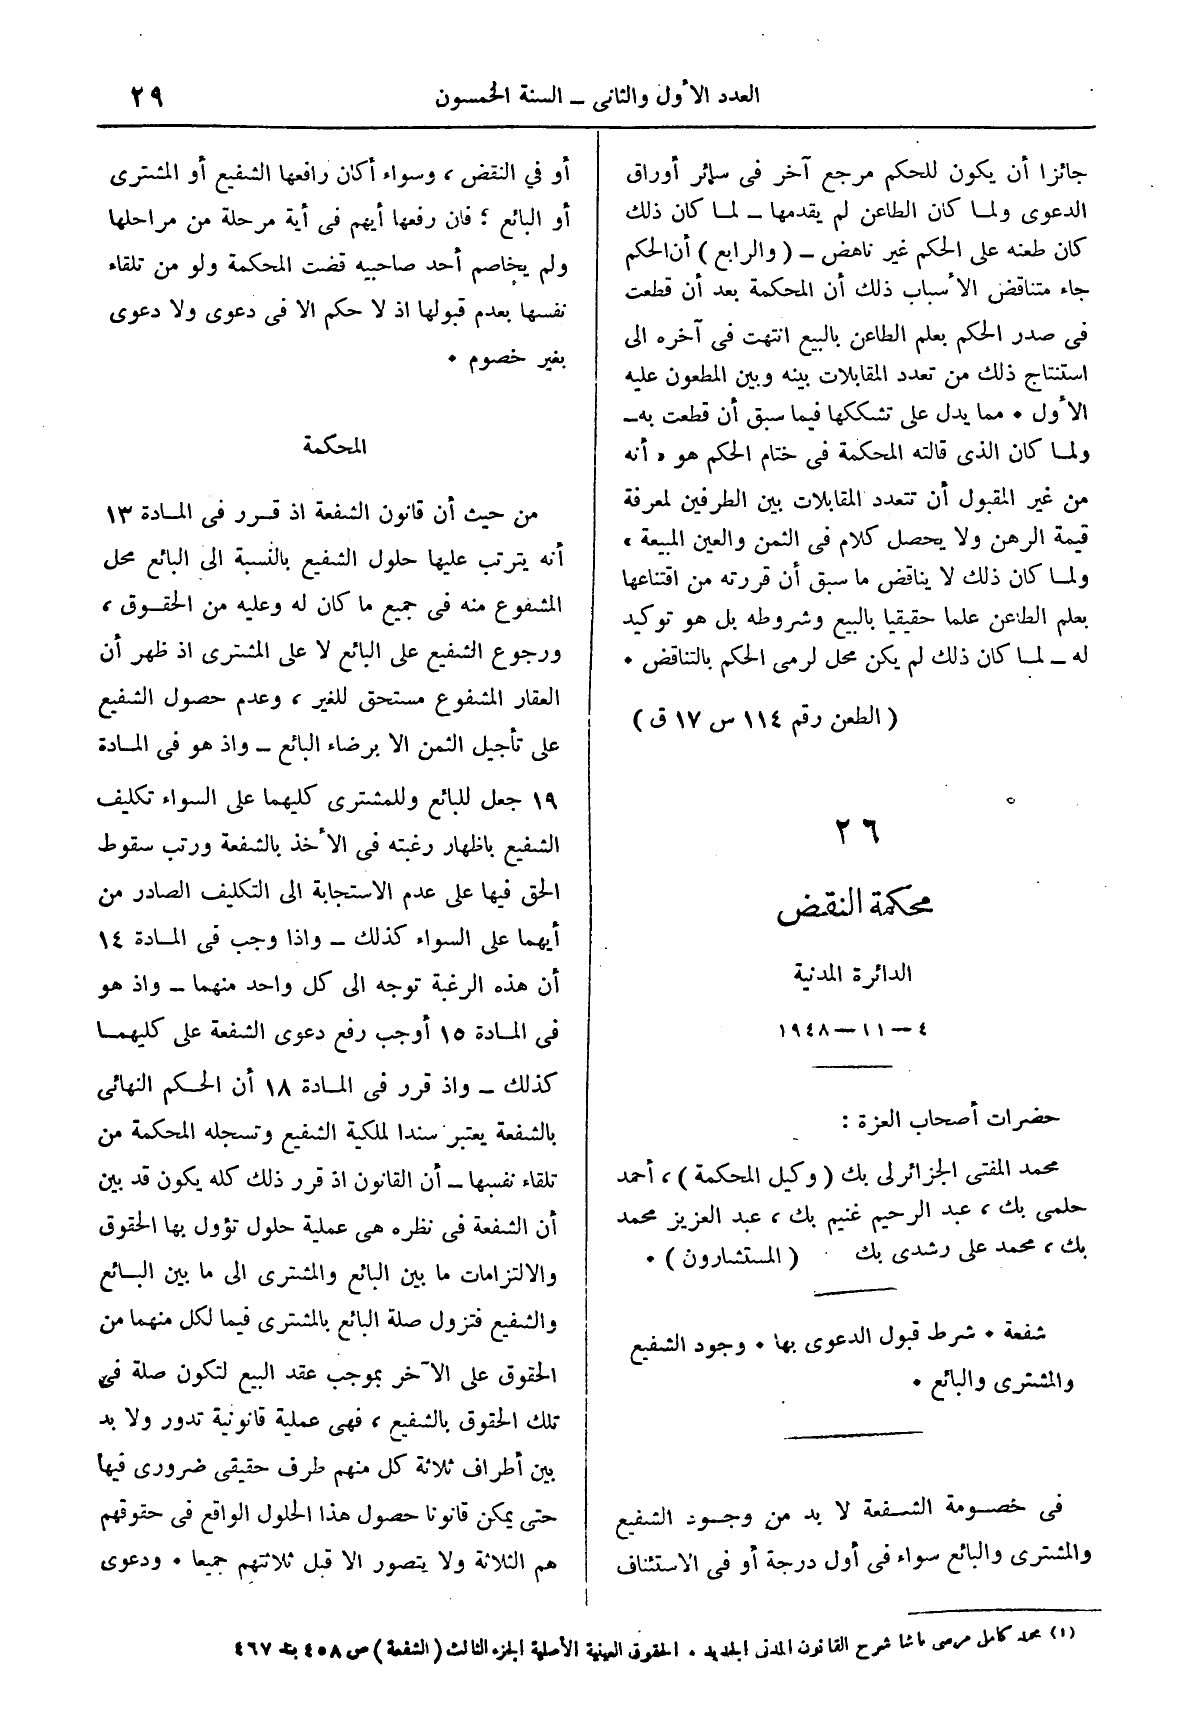 العدد الأول والثانى ــ السنة الخمسون
٢٩
جائزا أن يكون للحكم مرجع آخر فى سائر أوراق
الدعوى ولمـا كان الطاعن لم يقدمها ــ لمـا كان ذلك
كان طعنه على الحكم غير ناهض ــ ( والرابع ) أن الحكم
جاء متناقض الأسباب ذلك أن المحكمة بعد أن قطعت
فى صدر الحكم بعلم الطاعن بالبيع انتهت فى آخره الى
استنتاج ذلك من تعدد المقابلات بينه وبين المطعون عليه
الأول ٠ مما يدل على تشككها فيما سبق أن قطعت به ــ
ولمـا كان الذى قالته المحكمة فى ختام الحكم هو « أنه
من غير المقبول أن تتعدد المقابلات بين الطرفين لمعرفة
قيمة الرهن ولا يحصل كلام فى الثمن والعين المبيعة »
ولمـا كان ذلك لا يناقض ما سبق أن قررته من اقتناعها
بعلم الطاعن علما حقيقيا بالبيع وشروطه بل هو توكيد
له ــ لمـا كان ذلك لم يكن محل لرمى الحكم بالتناقض ٠
( الطعن رقم ١١٤ س ١٧ ق )
٢٦
محكمة النقض
الدائرة المدنية
٤ ــ ١١ ــ ١٩٤٨
حضرات أصحاب العزة :
محمد المفتى الجزائرلى بك ( وكيل المحكمة ) ، أحمد
حلمى بك ، عبد الرحيم غنيم بك ، عبد العزيز محمد
بك ، محمد على رشدى بك ( المستشارون ) ٠
شفعة ٠ شرط قبول الدعوى بها ٠ وجود الشفيع
والمشترى والبائع ٠
فى خصـومة الشـفعة لا بد من وجـود الشفيع
والمشترى والبائع سواء فى أول درجة أو فى الاستئناف
أو في النقض ، وسواء أكان رافعها الشفيع أو المشترى
أو البائع ؛ فان رفعها أيهم فى أية مرحلة من مراحلها
ولم يخاصم أحد صاحبيه قضت المحكمة ولو من تلقاء
نفسها بعدم قبولها اذ لا حكم الا فى دعوى ولا دعوى
بغير خصوم ٠
المحكمة
من حيث أن قانون الشفعة اذ قـرر فى المـادة ١٣
أنه يترتب عليها حلول الشفيع بالنسبة الى البائع محل
المشفوع منه فى جميع ما كان له وعليه من الحقـوق ،
ورجوع الشفيع على البائع لا على المشترى اذ ظهر أن
العقار المشفوع مستحق للغير ، وعدم حصول الشفيع
على تأجيل الثمن الا برضاء البائع ــ واذ هو فى المـادة
١٩ جعل للبائع وللمشترى كليهما على السواء تكليف
الشفيع باظهار رغبته فى الأخذ بالشفعة ورتب سقوط
الحق فيها على عدم الاستجابة الى التكليف الصادر من
أيهما على السواء كذلك ــ واذا وجب فى المـادة ١٤
أن هذه الرغبة توجه الى كل واحد منهما ــ واذ هو
فى المـادة ١٥ أوجب رفع دعوى الشفعة على كليهمـا
كذلك ــ واذ قرر فى المـادة ١٨ أن الحـكم النهائى
بالشفعة يعتبر سندا لملكية الشفيع وتسجله المحكمة من
تلقاء نفسها ــ أن القانون اذ قرر ذلك كله يكون قد بين
أن الشفعة فى نظره هى عملية حلول تؤول بها الحقوق
والالتزامات ما بين البائع والمشترى الى ما بين البـائع
والشفيع فتزول صلة البائع بالمشترى فيما لكل منهما من
الحقوق على الآخر بموجب عقد البيع لتكون صلة فى
تلك الحقوق بالشفيع ، فهى عملية قانونية تدور ولا بد
بين أطراف ثلاثة كل منهم طرف حقيقى ضرورى فيها
حتى يمكن قانونا حصول هذا الحلول الواقع فى حقوقهم
هم الثلاثة ولا يتصور الا قبل ثلاثتهم جميعا ٠ ودعوى
(١) محمد كامل مرسى باشا شرح القانون المدنى الجديد ٠ الحقوق العينية الأصلية الجزء الثالث ( الشفعة ) ص ٤٥٨ بند ٤٦٧